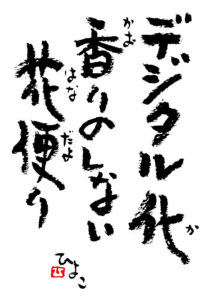 デジタル化
か
香りのしない
かお
花便り
はな だよ
ひよこ